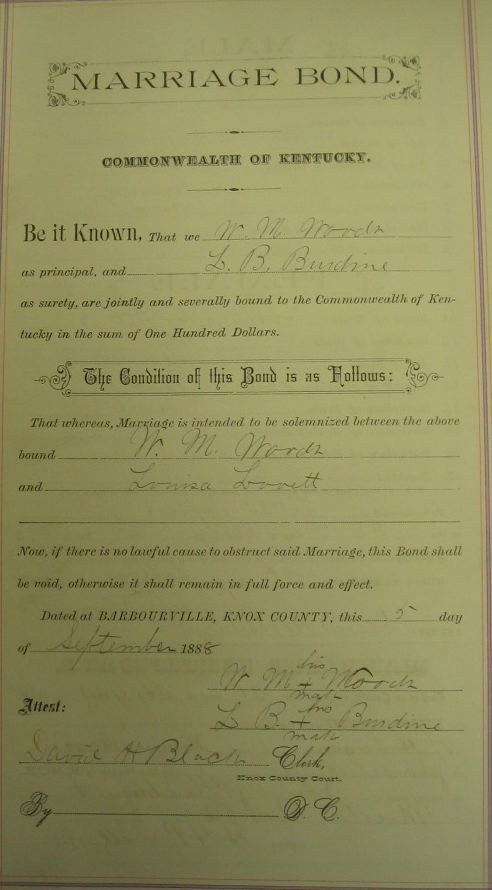 MARRIAGE BOND.
COMMONWEALTH OF KENTUCKY.
Be it Known, That we W. M. Woods
as principal, and L. B. Burdine
as surety, are jointly and severally bound to the Commonwealth of Ken-
tucky in the sum of One Hundred Dollars.
The Condition of this Bond is as Follows:
That whereas, Marriage is intended to be solemnized between the above
bound W. M. Woods
and Louisa Lovett
Now, if there is no lawful cause to obstruct said Marriage, this Bond shall
be void, otherwise it shall remain in full force and effect.
Dated at BARBOURVILLE, KNOX COUNTY, this 5 day
of September 1888
his
W M + Woods
mark
Attest:
his
L B + Burdine
mark
David H Black Clerk,
Knox County Court.
By D. C.